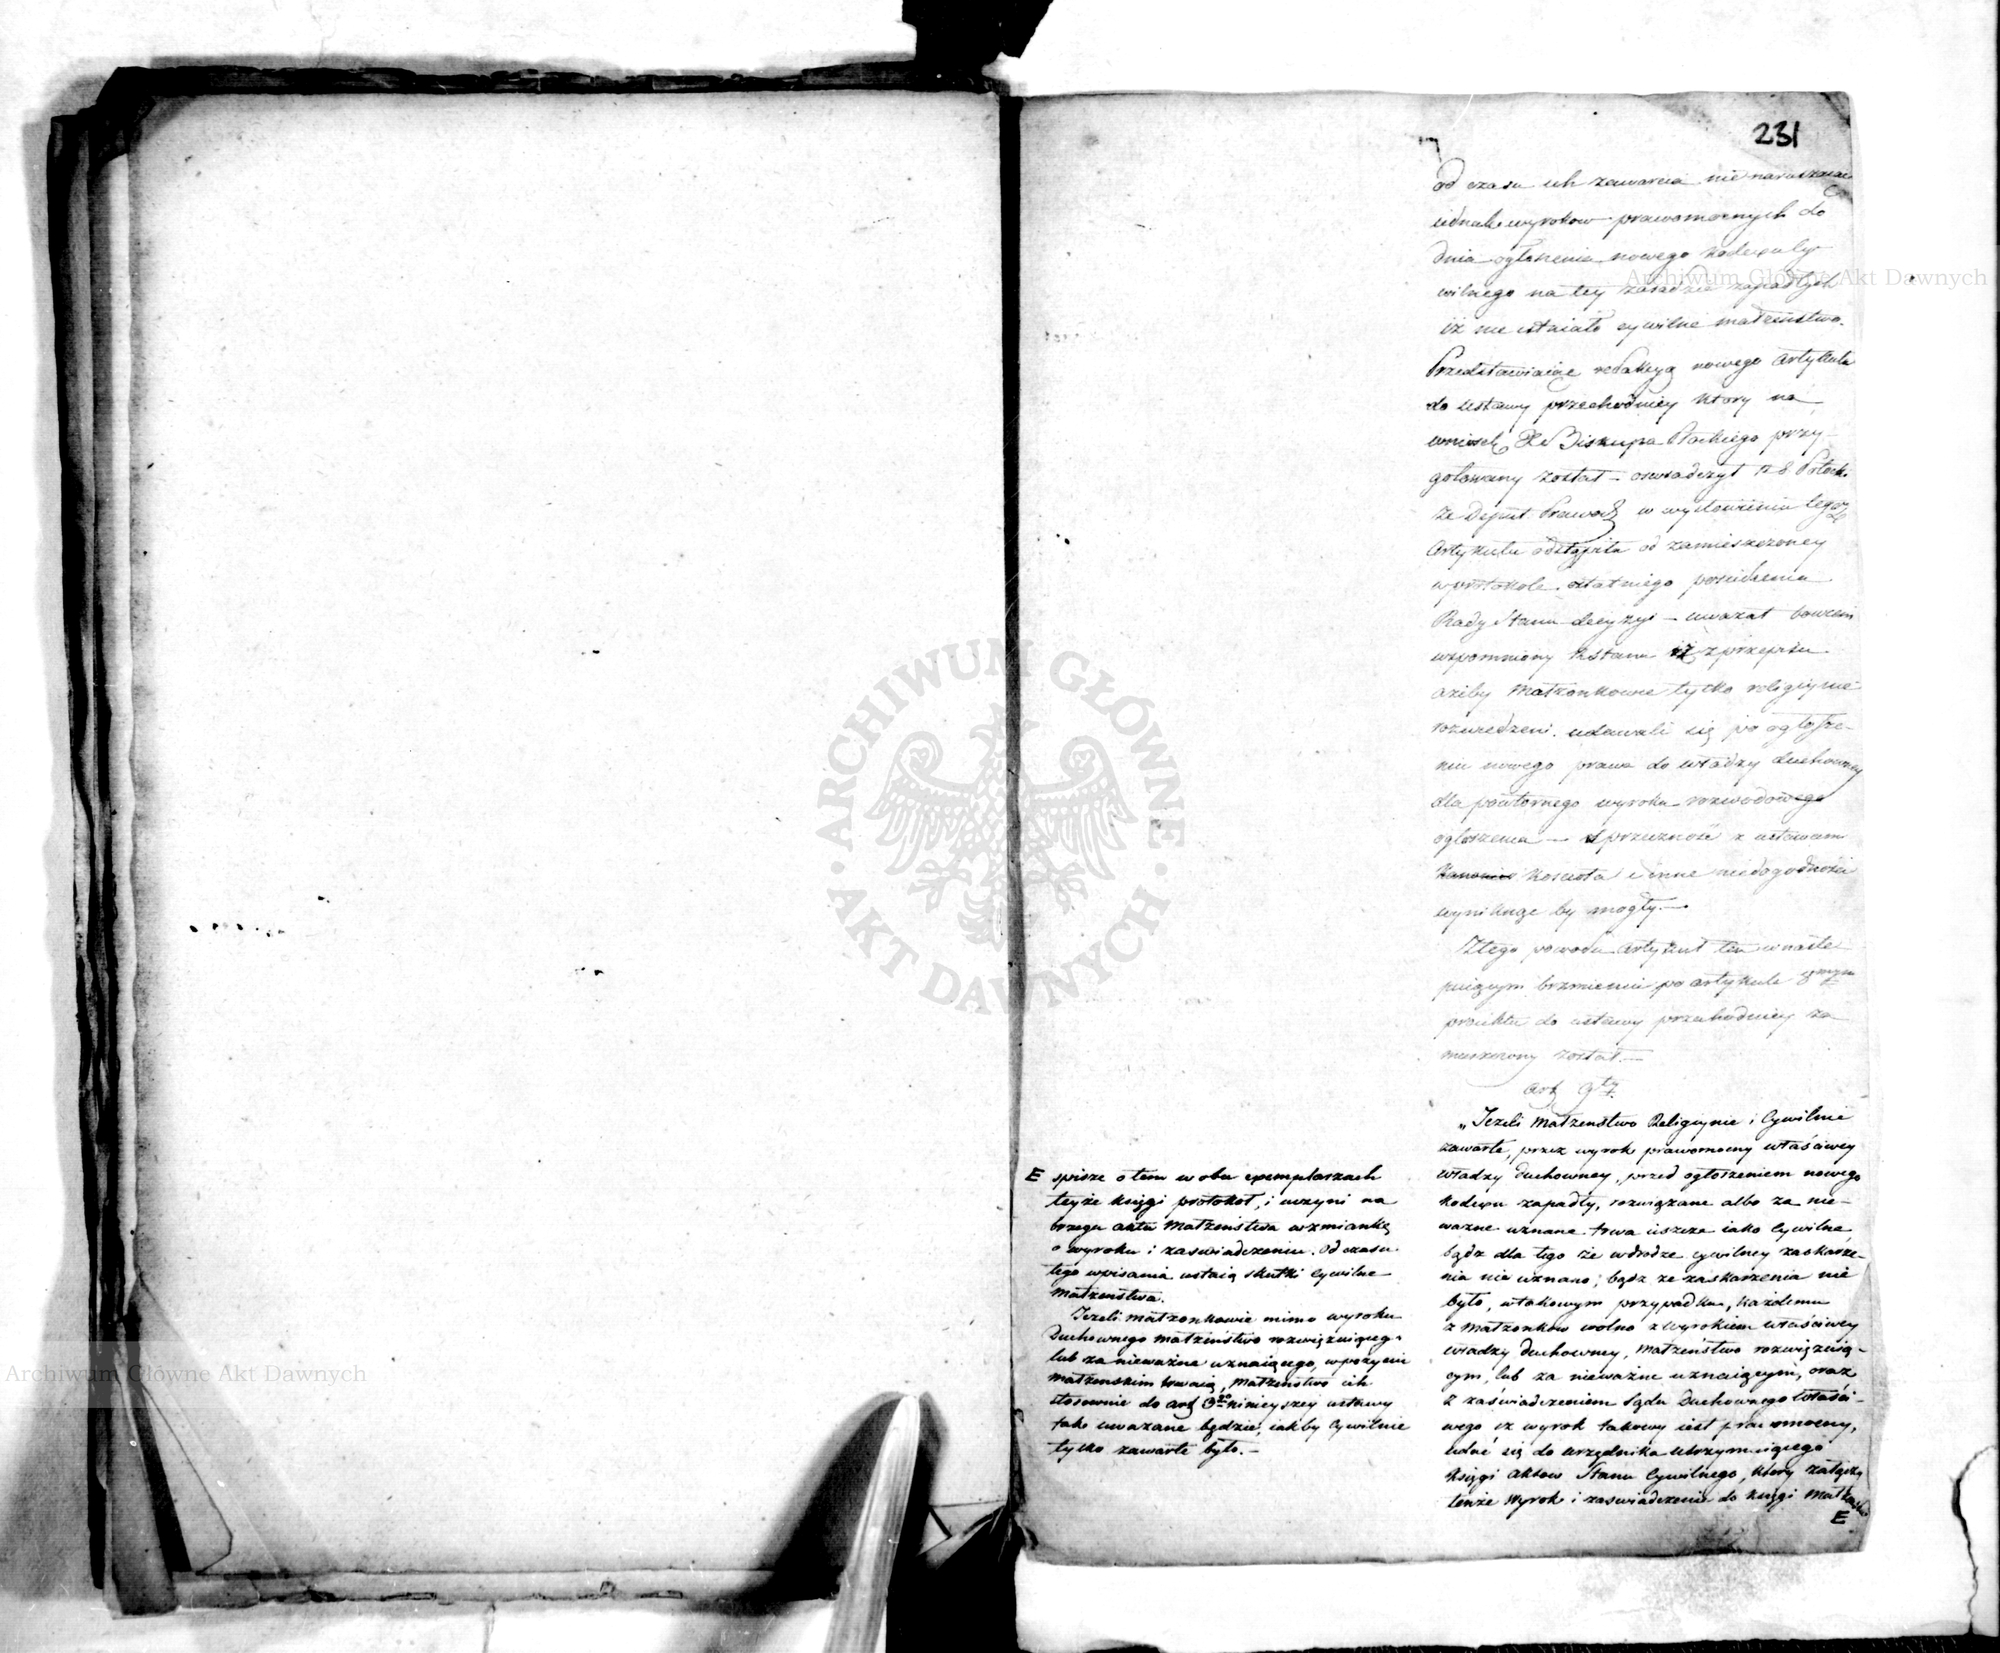 231
od czasu ich zawarcia nie naruszaiąc
iednak wyrokow prawomocnych do
dnia ogłoszenia nowego Kodexu Cy-
wilnego na tey zasadzie zapadłych
iż nie istniało cywilne małżeństwo.
Przedstawiaiąc redakcyą nowego Artykułu
do ustawy przechodniey ktory na
wniosek Xe Biskupa Płockiego przy-
gotowany został – oswiadczył R. S. Potocki
że Deput. Prawod. w wysłowieniu tego
Artykułu odstąpiła od zamieszczoney
w protokole ostatniego posiedzenia
Rady Stanu decyzyi – uważał bowiem
wspomniony R Stanu iż z przepisu
ażeby Małżonkowie tylko religiynie
rozwiedzeni udawali się po ogłosze-
niu nowego prawa do władzy duchowney
dla powtornego wyroku rozwodowego
ogłoszenia – sprzeczność z ustawami
Kościoła i inne niedogodności
wyniknąć by mogły. –
Z tego powodu Artykuł ten w nastę-
puiącym brzmieniu po artykule 8mym
proiektu do ustawy przechodniey za-
mieszczony został. –
Art 9ty.
„Jeżeli Małżeństwo Religiynie i Cywilnie
zawarte, przez wyrok prawomocny właściwey
Władzy Duchowney, przed ogłoszeniem nowego
Kodexu zapadły, rozwiązane albo za nie-
ważne uznane trwa ieszcze iako Cywilne,
bądź dla tego że w drodze cywilney zaskarże-
nia nie uznano, bądź że zaskarżenia nie
było, w takowym przypadku, każdemu
z Małżonkow wolno z wyrokiem właściwey
władzy Duchowney, Małżeństwo rozwiązuią-
cym, lub za nieważne uznaiącym, oraz
z zaświadczeniem Sądu Duchownego właści-
wego iż wyrok takowy iest prawomocny,
udać się do urzędnika utrzymuiącego
Księgi Aktow Stanu Cywilnego, który załączy
tenże Wyrok i zaswiadczenie do księgi Małżeństw
E
E spisze o tem w obu exemplarzach
teyże księgi protokół, i uczyni na
brzegu aktu Małżeństwa wzmiankę
o wyroku i zaświadczeniu. Od czasu
tego wpisania ustaią skutki Cywilne
Małżeństwa.
Jeżeli małżonkowie mimo wyroku
Duchownego małżeństwo rozwiązuiącego
lub za nieważne uznaiącego, w pożyciu
małżenskim trwaią, Małżeństwo ich
stosownie do Art 3go ninieyszey ustawy
tak uważane będzie, iakby Cywilnie
tylko zawarte było. –
Archiwum Główne Akt Dawnych
Archiwum Główne Akt Dawnych
ARCHIWUM GŁÓWNE
AKT DAWNYCH